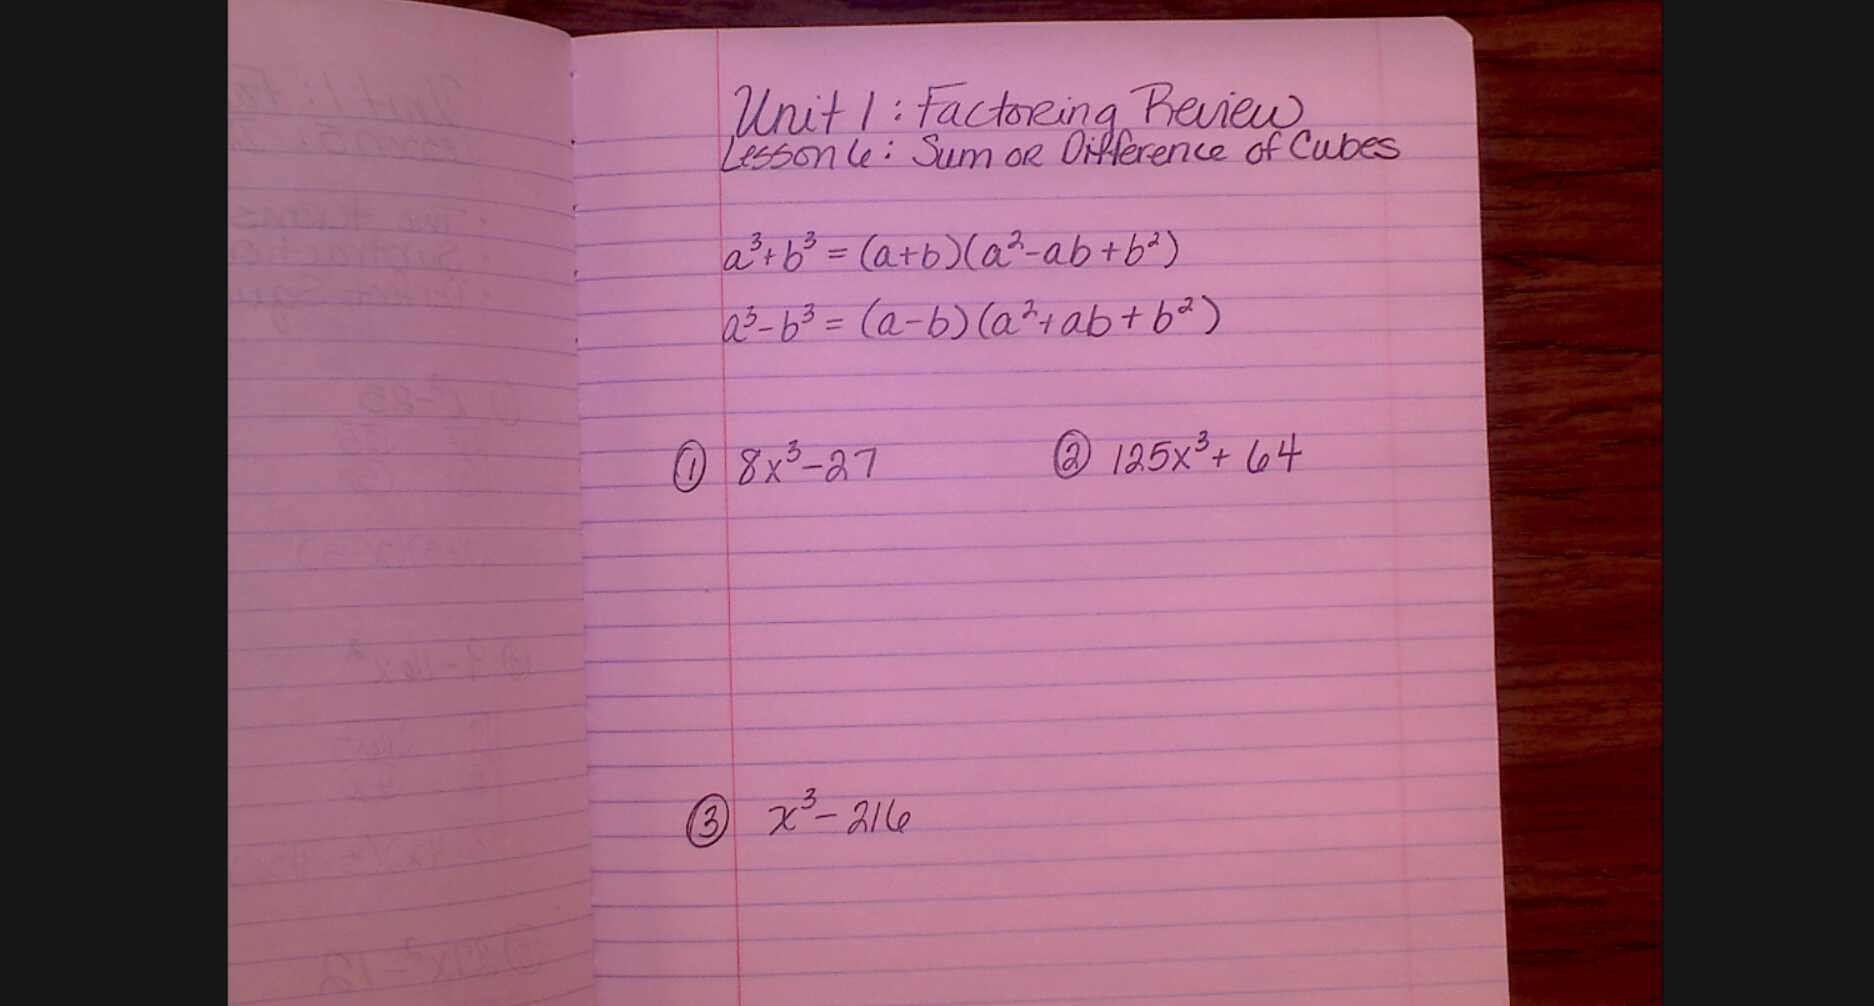 Unit 1: Factoring Review
Lesson 6: Sum or Difference of Cubes
a³+b³ = (a+b)(a²-ab+b²)
a³-b³ = (a-b)(a²+ab+b²)
① 8x³-27 ② 125x³+64
③ x³-216